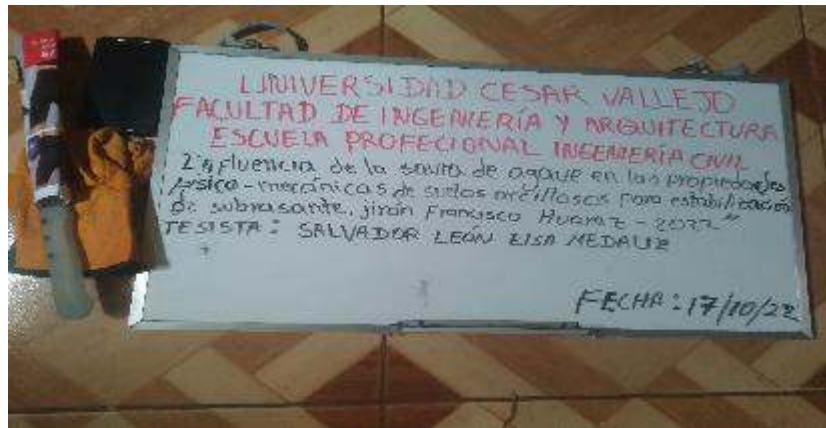 UNIVERSIDAD CESAR VALLEJO
FACULTAD DE INGENIERÍA Y ARQUITECTURA
ESCUELA PROFECIONAL INGENIERÍA CIVIL
Influencia de la savia de agave en las propiedades
físico-mecánicas de suelos arcillosos para estabilización
de subrasante, jirón Francisco Huaraz - 2022"
TESISTA: SALVADOR LEÓN ELSA
FECHA: 17/10/22